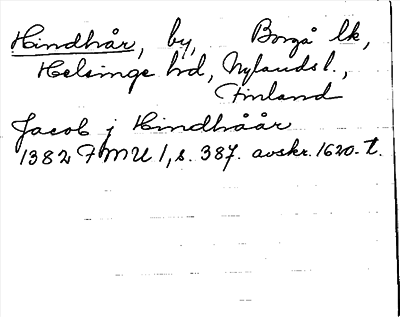 Hindhår, by, Borgå lk,
Helsinge hd, Nylands l.,
Finland
Jacob j Hindhåår
1382 FMU 1, s. 387. avskr. 1620-t.